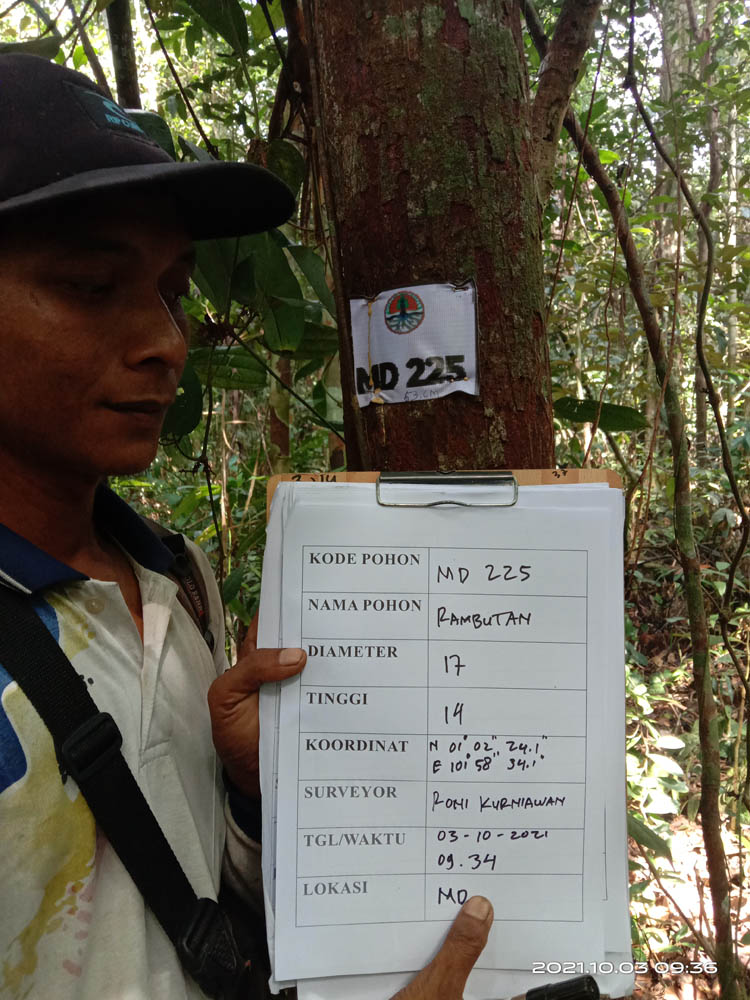 MD 225
53 CM
KODE POHON MD 225
NAMA POHON RAMBUTAN
DIAMETER 17
TINGGI 14
KOORDINAT N 01° 02' 24.1"
E 101° 58' 34.1"
SURVEYOR RONI KURNIAWAN
TGL/WAKTU 03-10-2021
09.34
LOKASI MD
2021.10.03 09:36